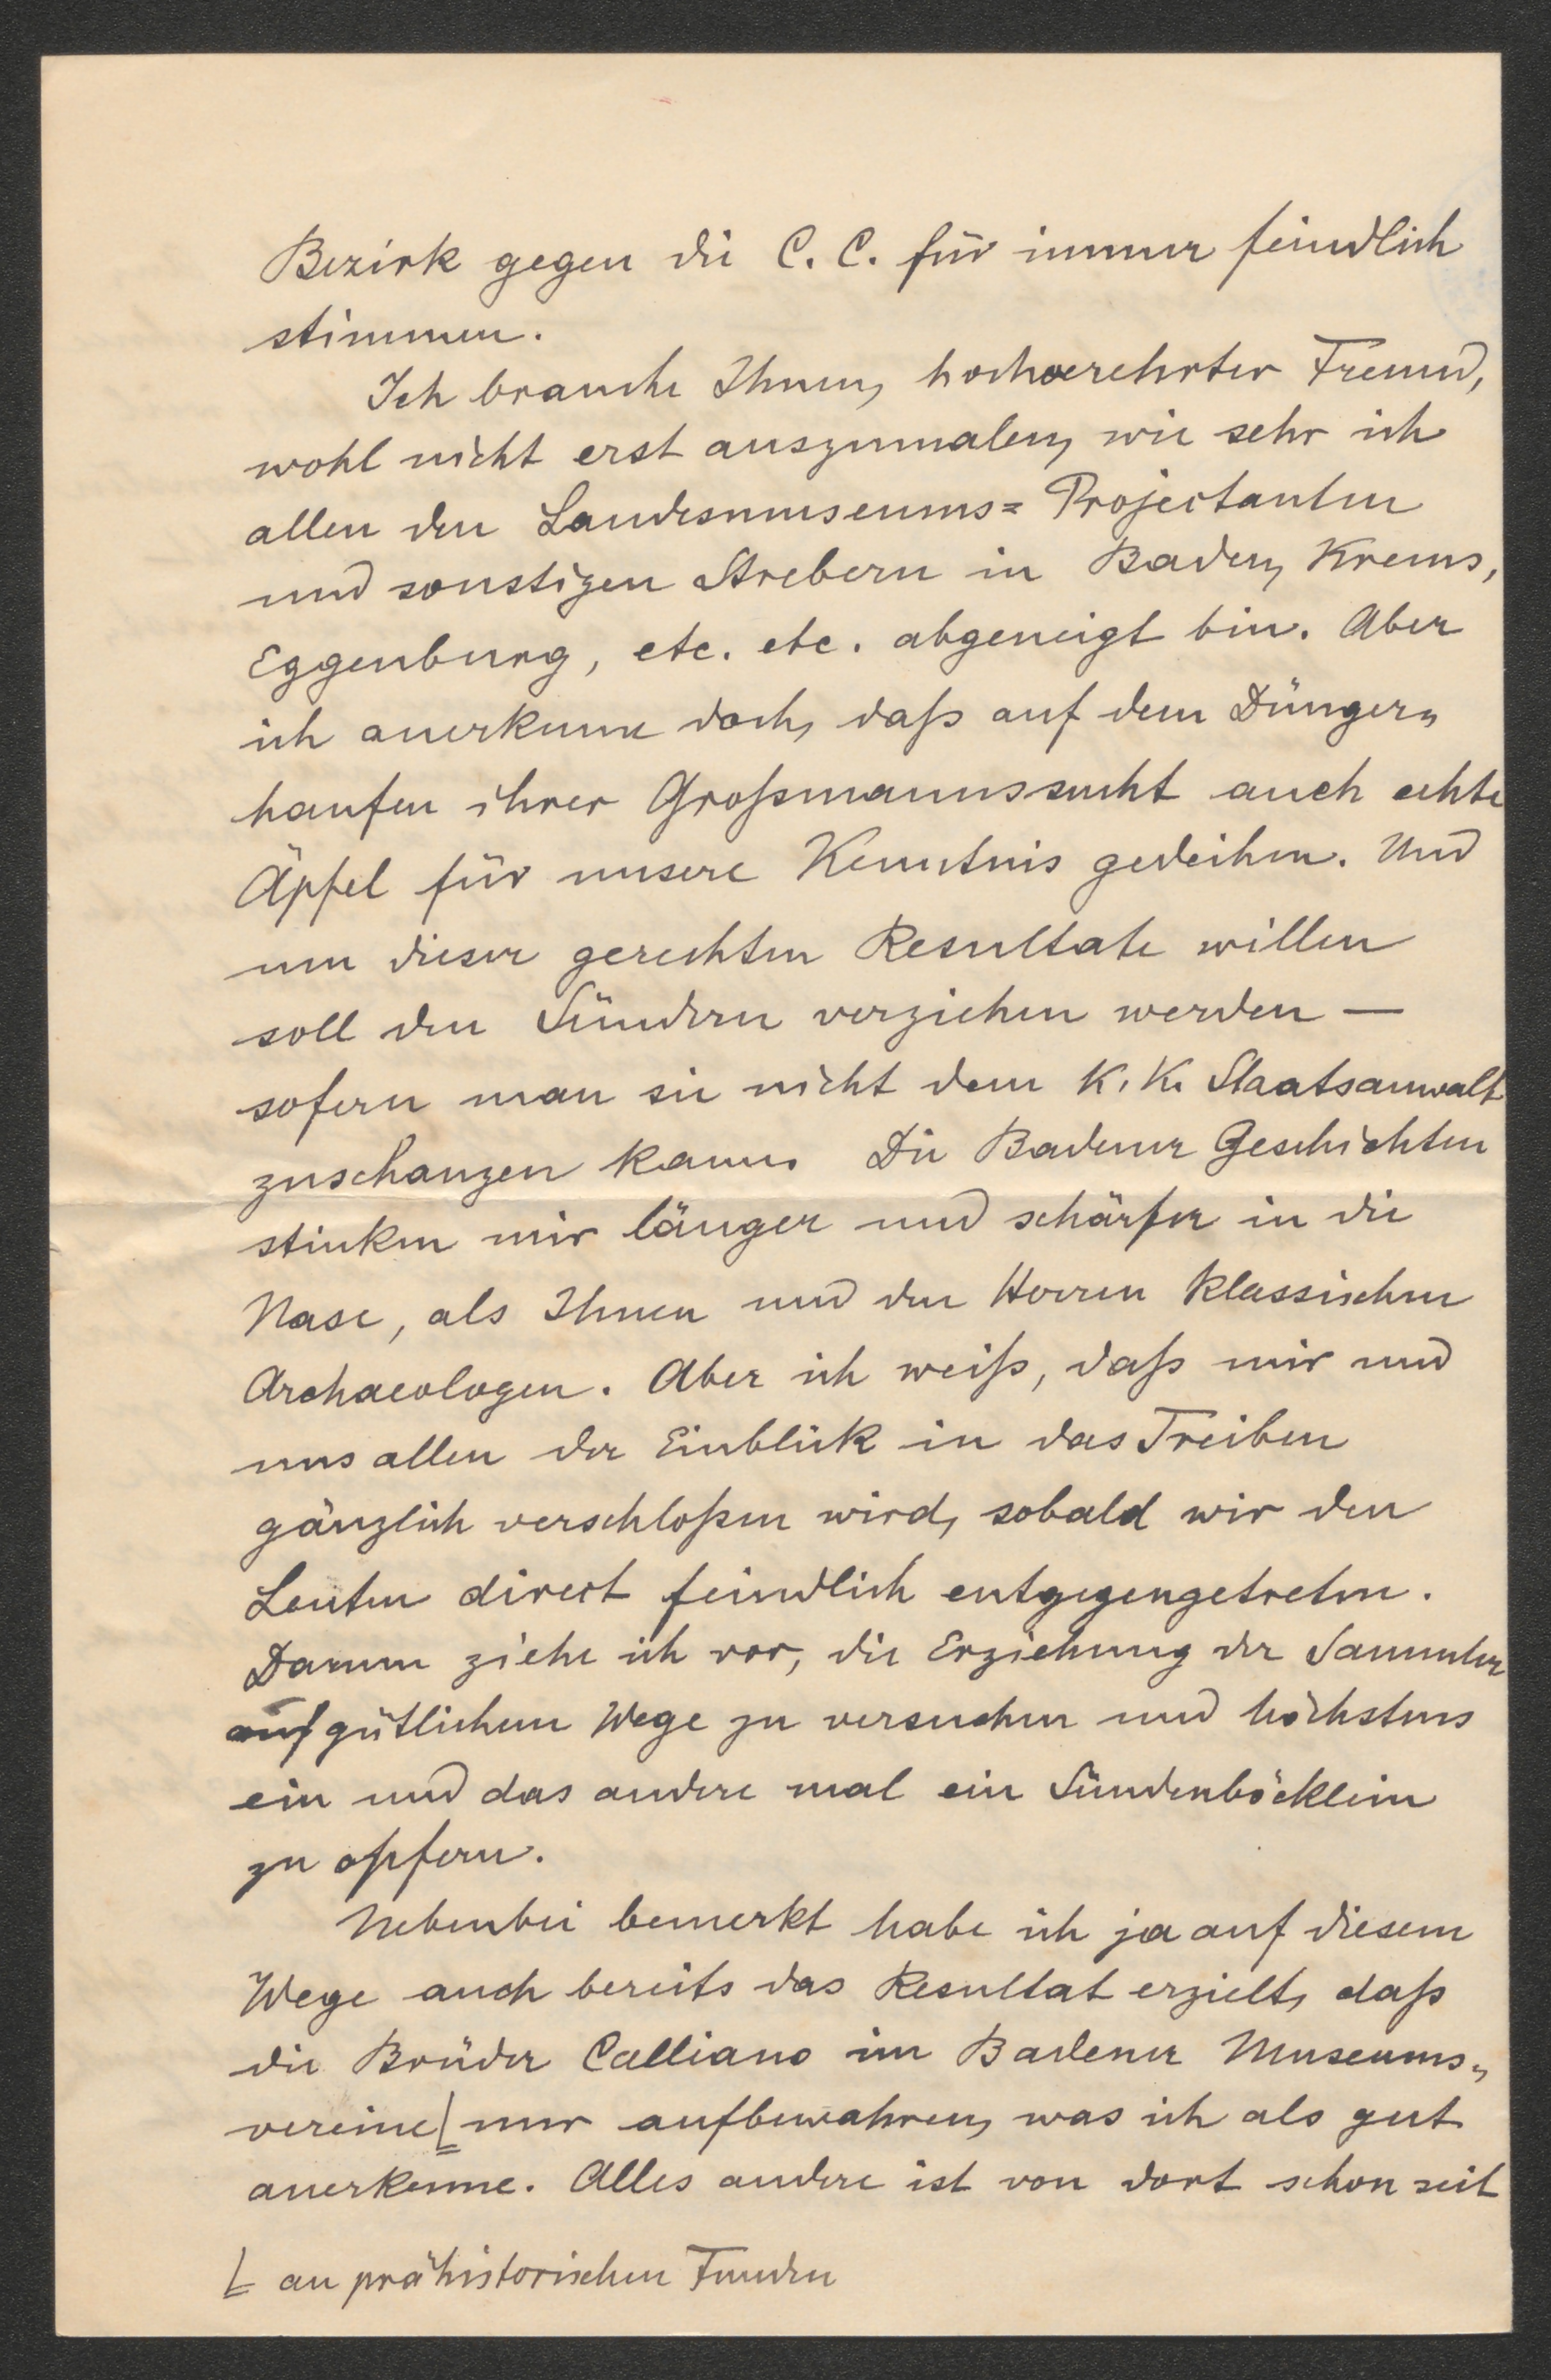 Bezirk gegen die C. C. für immer feindlich
stimmen.
Ich brauche Ihnen, hochverehrter Freund,
wohl nicht erst auszumalen, wie sehr ich
allen den Landesmuseums= Projectanten
und sonstigen Strebern in Baden, Krems,
Eggenburg, etc. etc. abgeneigt bin. Aber
ich anerkenne doch, daß auf dem Dünger„
haufen ihrer Großmannssucht auch echte
Äpfel für unsere Kenntnis gedeihen. Und
um dieser gerechten Resultate willen
soll den Sündern verziehen werden —
sofern man sie nicht dem K. K. Staatsanwalt
zuschanzen kann. Die Badener Geschichten
stinken mir länger und schärfer in die
Nase, als Ihnen und den Herren klassischen
Archaeologen. Aber ich weiß, daß mir und
uns allen der Einblick in das Treiben
gänzlich verschloßen wird, sobald wir den
Leuten direct feindlich entgegengetreten.
Darum ziehe ich vor, die Erziehung der Sammler
auf gütlichem Wege zu versuchen und höchstens
ein und das andere mal ein Sündenböcklein
zu opfern.
Nebenbei bemerkt habe ich ja auf diesem
Wege auch bereits das Resultat erzielt, daß
die Brüder Calliano im Badener Museums„
vereine nur aufbewahren, was ich als gut
anerkenne. Alles andere ist von dort schon seit
an prähistorischen Funden